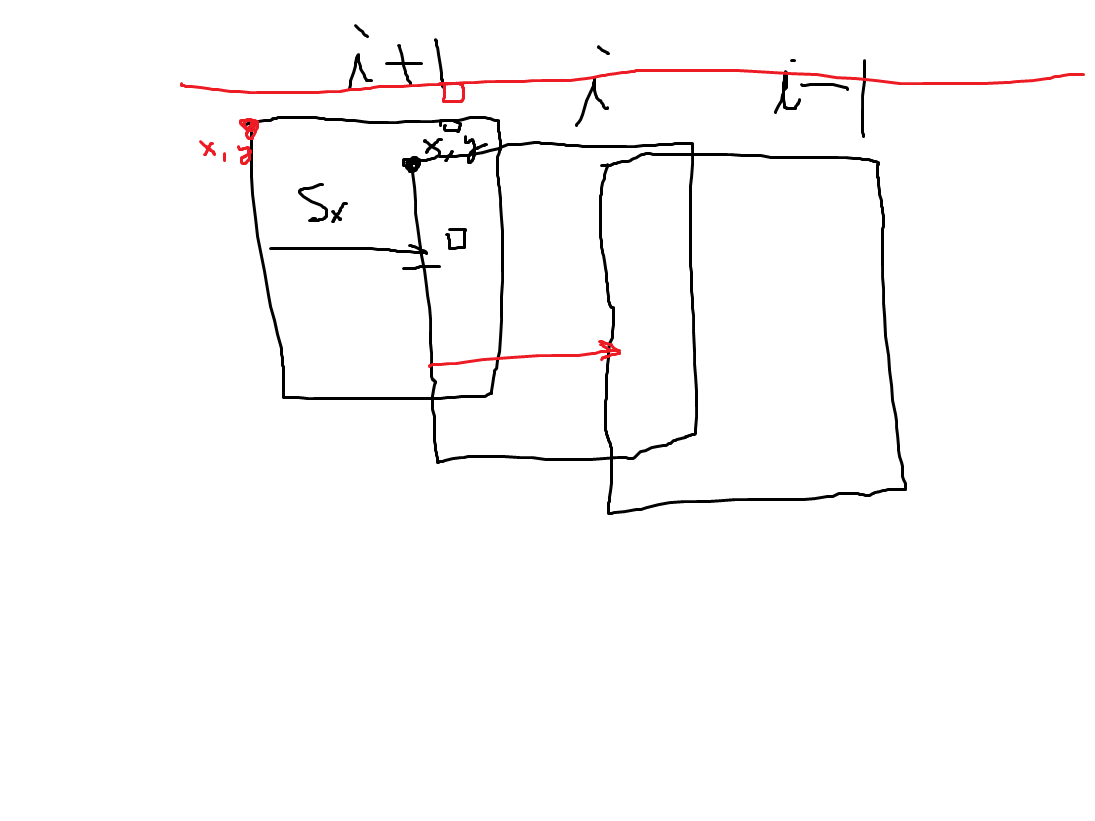 i+1 i i-1
x, y
x, y
Sx